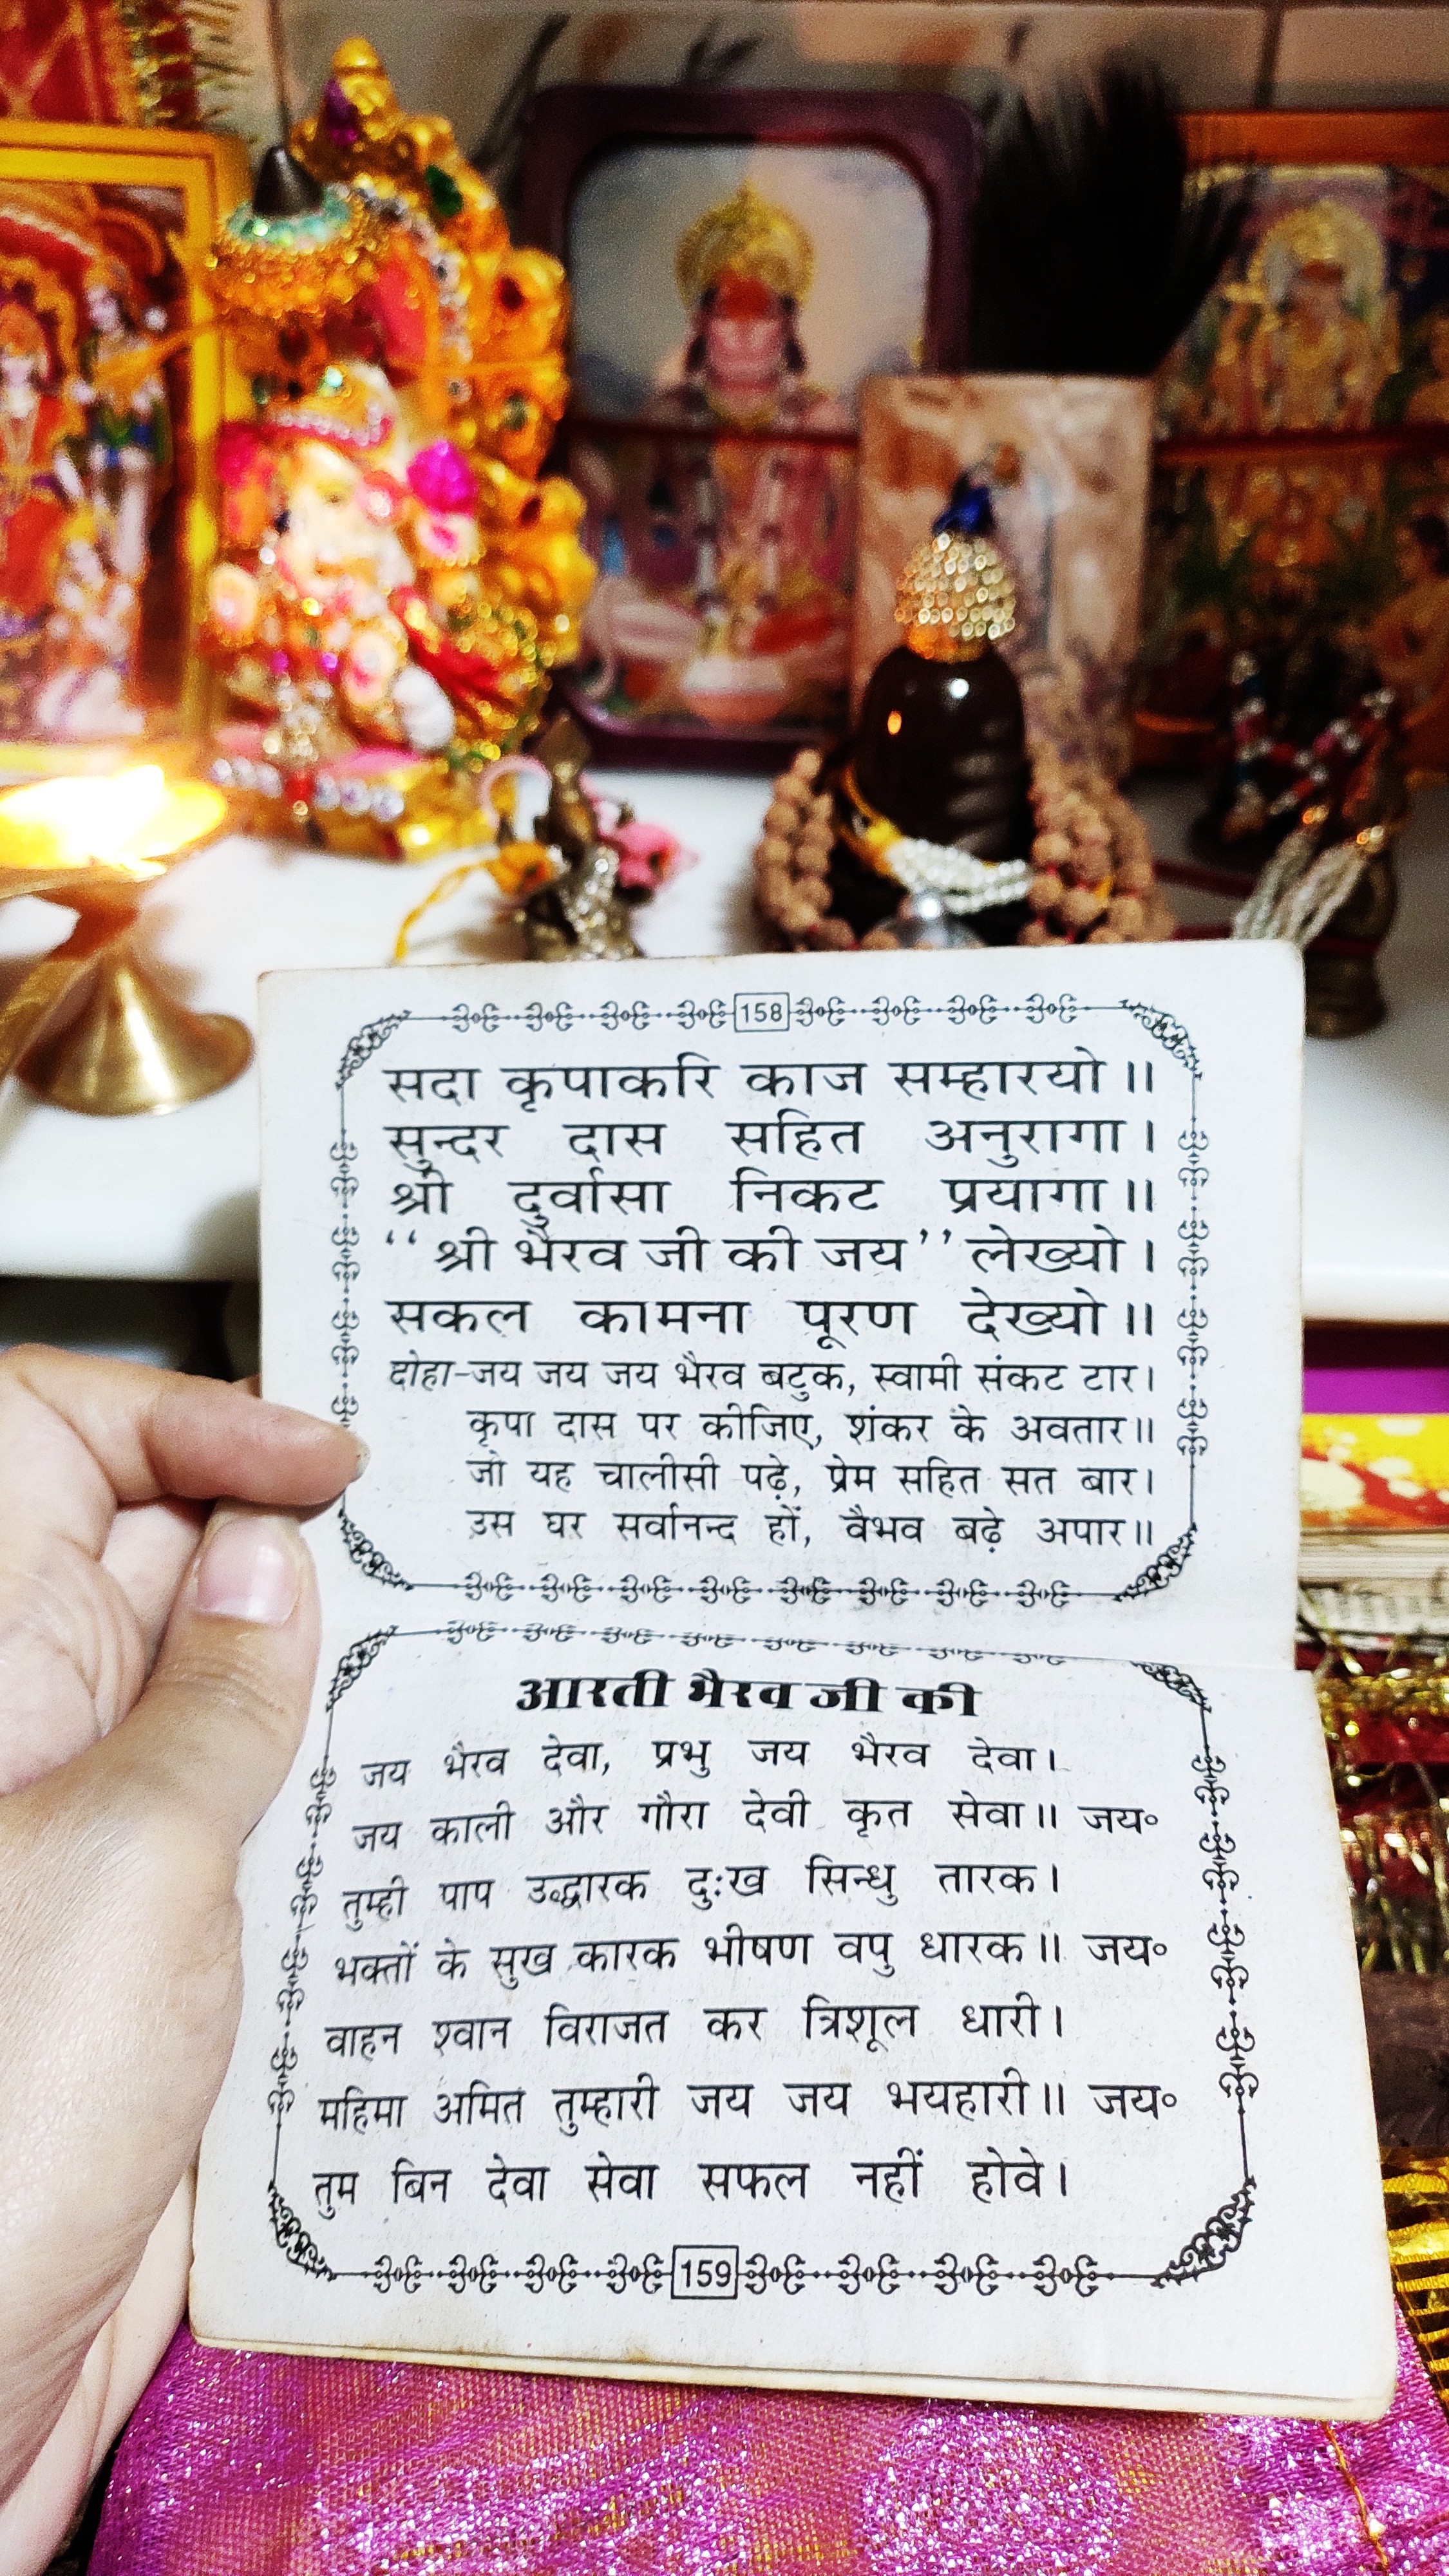 158
सदा कृपाकरि काज सम्हारयो॥
सुन्दर दास सहित अनुरागा।
श्री दुर्वासा निकट प्रयागा॥
‘‘श्री भैरव जी की जय’’ लेख्यो।
सकल कामना पूरण देख्यो॥
दोहा-जय जय जय भैरव बटुक, स्वामी संकट टार।
कृपा दास पर कीजिए, शंकर के अवतार॥
जो यह चालीसी पढ़े, प्रेम सहित सत बार।
उस घर सर्वानन्द हों, वैभव बढ़े अपार॥
आरती भैरव जी की
जय भैरव देवा, प्रभु जय भैरव देवा।
जय काली और गौरा देवी कृत सेवा॥ जय॰
तुम्ही पाप उद्धारक दुःख सिन्धु तारक।
भक्तों के सुख कारक भीषण वपु धारक॥ जय॰
वाहन श्वान विराजत कर त्रिशूल धारी।
महिमा अमित तुम्हारी जय जय भयहारी॥ जय॰
तुम बिन देवा सेवा सफल नहीं होवे।
159